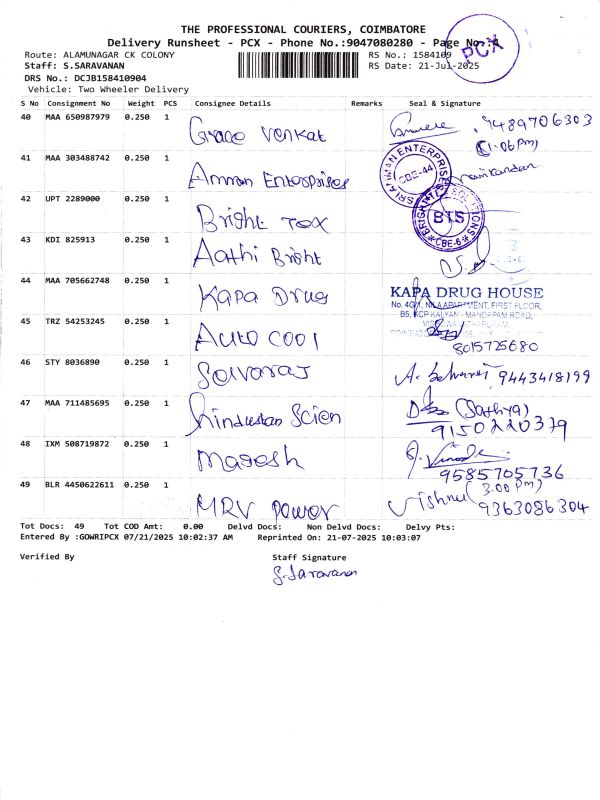 THE PROFESSIONAL COURIERS, COIMBATORE
Delivery Runsheet - PCX - Phone No.:9047080280 - Page No.:4
PCX
Route: ALAMUNAGAR CK COLONY
RS No.: 1584109
Staff: S.SARAVANAN
RS Date: 21-Jul-2025
DRS No.: DCJB158410904
Vehicle: Two Wheeler Delivery
S No Consignment No Weight PCS Consignee Details Remarks Seal & Signature
40 MAA 650987979 0.250 1 Grace Venkat 9489706303
(1.06 pm)
41 MAA 303488742 0.250 1 Amman Enterprises
SRI AMMAN ENTERPRISES CBE-44
42 UPT 2289000 0.250 1 Bright Tex
BTS SOLUTIONS CBE-6
43 KDI 825913 0.250 1 Aathi Bright
44 MAA 705662748 0.250 1 Kapa Drug
KAPA DRUG HOUSE
No. 4G/1, NILA APARTMENT, FIRST FLOOR,
B5, KCP KALYAN MANDAPAM ROAD,
45 TRZ 54253245 0.250 1 Auto Cool
8015725680
46 STY 8036890 0.250 1 Selvaraj A. Selvaraj 9443418199
47 MAA 711485695 0.250 1 Hindustan Scien (Sathya)
9150220379
48 IXM 508719872 0.250 1 Maresh
9585705736
49 BLR 4450622611 0.250 1 MRV Power Vishnu (3.00 pm)
9363086304
Tot Docs: 49 Tot COD Amt: 0.00 Delvd Docs: Non Delvd Docs: Delvy Pts:
Entered By :GOWRIPCX 07/21/2025 10:02:37 AM Reprinted On: 21-07-2025 10:03:07
Verified By Staff Signature
S. Saravanan